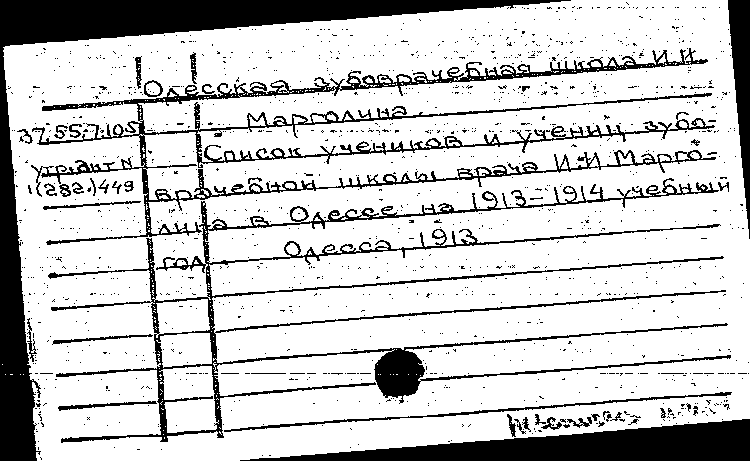 Одесская зубоврачебная школа И.И.
Марголина.
37.55.7.105
Список учеников и учениц зубо=
Утр.акт N
1(282.)449
врачебной школы врача И.И. Марго=
лина в Одессе на 1913-1914 учебный
год. Одесса, 1913